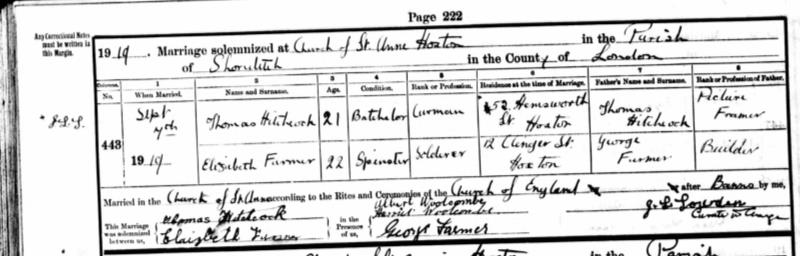 Page 222
Any Correctional Notes
must be written in
this Margin.
1919. Marriage solemnized at Church of St. Anne Hoxton in the Parish
of Shoreditch in the County of London
Columns. 1 2 3 4 5 6 7 8
No. When Married. Name and Surname. Age. Condition. Rank or Profession. Residence at the time of Marriage. Father's Name and Surname. Rank or Profession of Father.
443
Sept 7th 1919
Thomas Hitchcock 21 Batchelor Carman 52 Hemsworth St. Hoxton Thomas Hitchcock Picture Framer
Elizabeth Farmer 22 Spinster Solderer 12 Clinger St. Hoxton George Farmer Builder
Married in the Church of St Anne according to the Rites and Ceremonies of the Church of England after Banns by me,
This Marriage
was solemnized
between us,
Thomas Hitchcock
Elizabeth Farmer
in the
Presence
of us,
Albert Woolcombe
Harriet Woolcombe
George Farmer
in the Parish